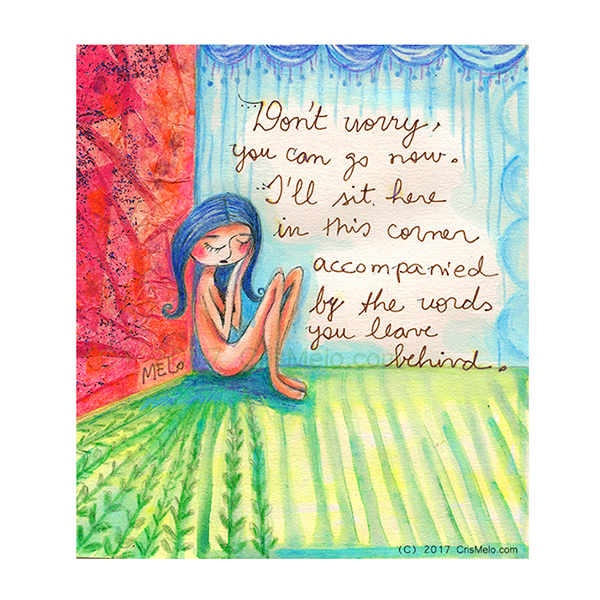 Don't worry,
you can go now.
I'll sit here
in this corner
accompanied
by the words
you leave
behind.
MELO
CrisMelo.com
(C) 2017 CrisMelo.com